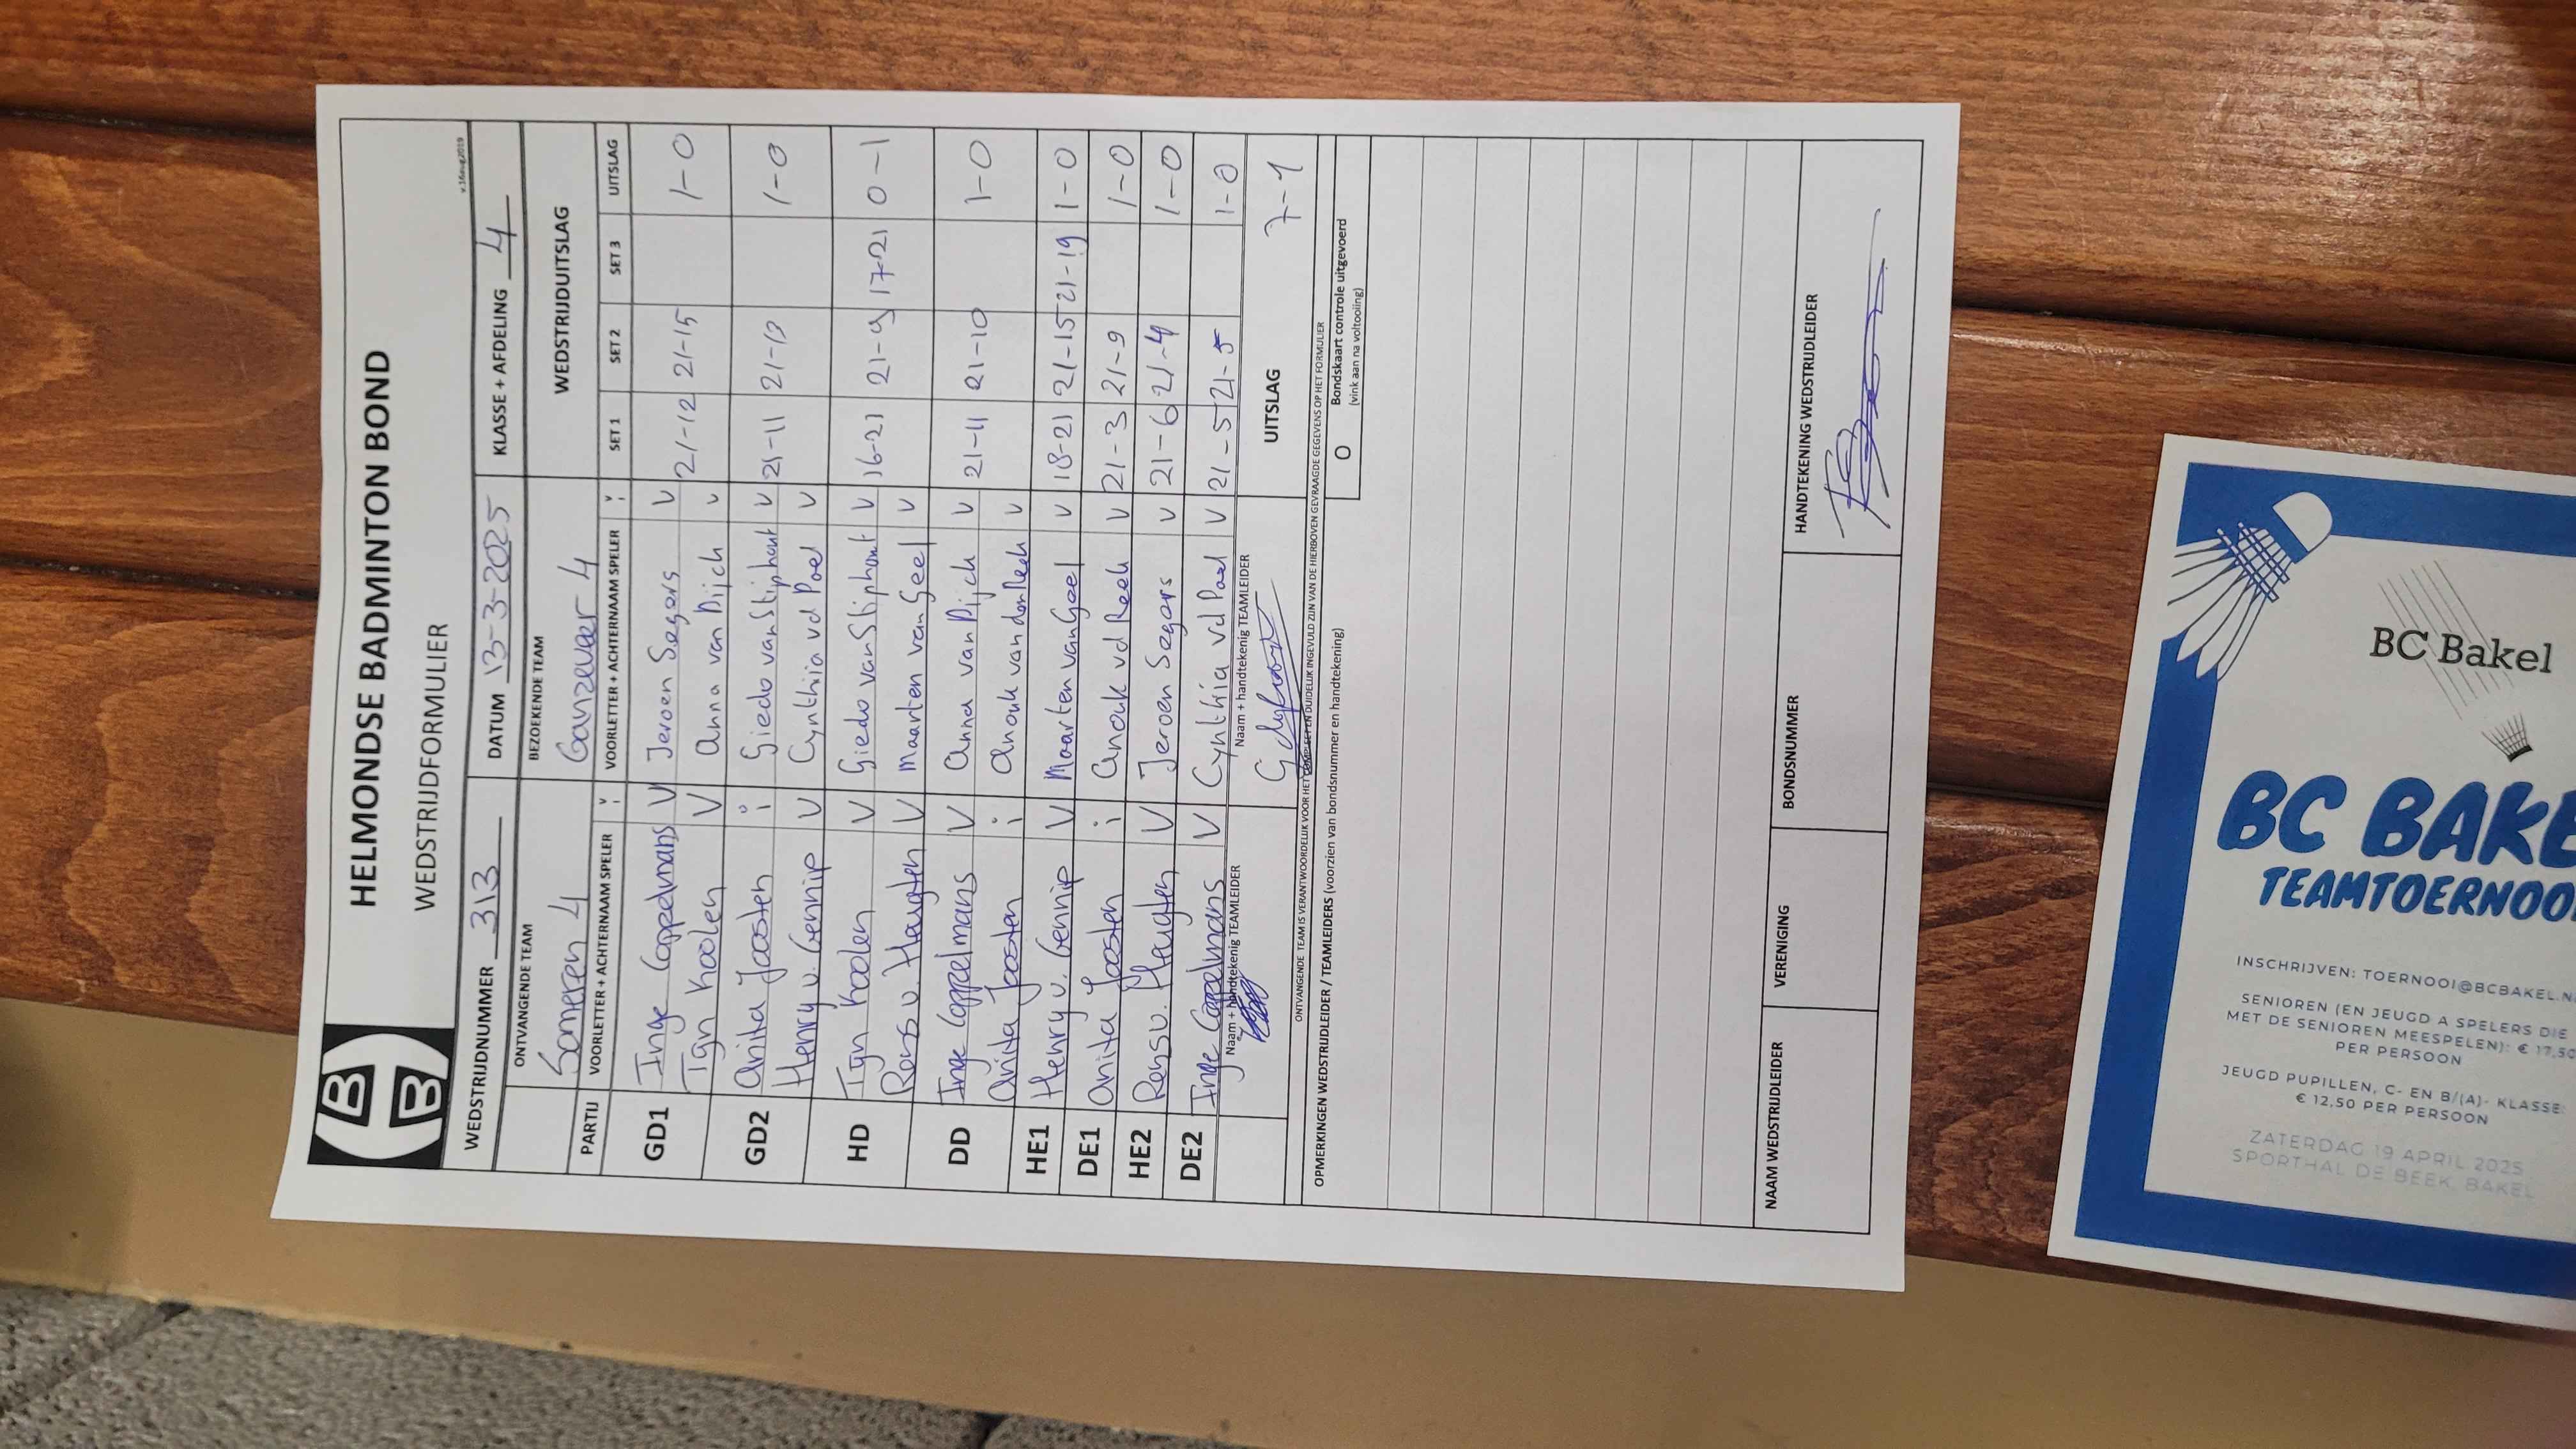 HELMONDSE BADMINTON BOND
WEDSTRIJDFORMULIER
v.16aug2019
WEDSTRIJDNUMMER 313 DATUM 13-3-2025 KLASSE + AFDELING 4
ONTVANGENDE TEAM BEZOEKENDE TEAM WEDSTRIJDUITSLAG
Someren 4 Ganzeveer 4
PARTIJ VOORLETTER + ACHTERNAAM SPELER V i VOORLETTER + ACHTERNAAM SPELER V i SET 1 SET 2 SET 3 UITSLAG
GD1 Inge Coppelmans V Jeroen Segers V 21-12 21-15 1-0
Tijn Koolen V Anna van Dijck V
GD2 Anita Joosten i Giedo van Stiphout V 21-11 21-13 1-0
Henry v. Gennip V Cynthia vd Poel V
HD Tijn Koolen V Giedo van Stiphout V 16-21 21-9 17-21 0-1
Rens v. Heugten V Maarten van Geel V
DD Inge Coppelmans V Anna van Dijck V 21-11 21-10 1-0
Anita Joosten i Anouk van den Reek V
HE1 Henry v. Gennip V Maarten van Geel V 18-21 21-15 21-19 1-0
DE1 Anita Joosten i Anouk vd Reek V 21-3 21-9 1-0
HE2 Rens v. Heugten V Jeroen Segers V 21-6 21-4 1-0
DE2 Inge Coppelmans V Cynthia vd Poel V 21-5 21-5 1-0
Naam + handtekenig TEAMLEIDER Naam + handtekenig TEAMLEIDER UITSLAG 7-1
ONTVANGENDE TEAM IS VERANTWOORDELIJK VOOR HET COMPLEET EN DUIDELIJK INGEVULD ZIJN VAN DE HIERBOVEN GEVRAAGDE GEGEVENS OP HET FORMULIER
OPMERKINGEN WEDSTRIJDLEIDER / TEAMLEIDERS (voorzien van bondsnummer en handtekening)
O Bondskaart controle uitgevoerd
(vink aan na voltooiing)
NAAM WEDSTRIJDLEIDER VERENIGING BONDSNUMMER HANDTEKENING WEDSTRIJDLEIDER
BC Bakel
BC BAKE
TEAMTOERNOO
INSCHRIJVEN: TOERNOOI@BCBAKEL.N
SENIOREN (EN JEUGD A SPELERS DIE
MET DE SENIOREN MEESPELEN): € 17,50
PER PERSOON
JEUGD PUPILLEN, C- EN B/(A)- KLASSE:
€ 12,50 PER PERSOON
ZATERDAG 19 APRIL 2025
SPORTHAL DE BEEK, BAKEL